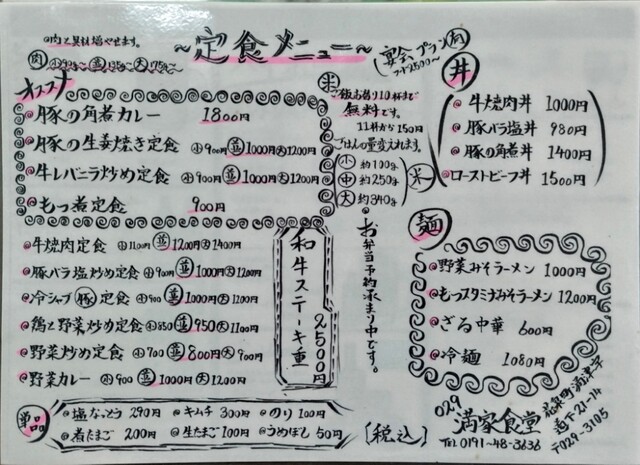 ~定食メニュー~
◎肉と具材増やせます。
肉 小90g〜 並135g〜 大175g〜
宴会プラン有
フード2500〜
オススメ
豚の角煮カレー 1800円
豚の生姜焼き定食 小900円 並1000円 大1200円
牛レバニラ炒め定食 小900円 並1000円 大1200円
もつ煮定食 900円
牛焼肉定食 小1100円 並1200円 大1400円
豚バラ塩炒め定食 小900円 並1000円 大1200円
冷シャブ豚定食 小900 並1000円 大1200円
鶏と野菜炒め定食 小850 並950円 大1100円
野菜炒め定食 小700 並800円 大900円
野菜カレー 小900 並1000円 大1200円
米
ご飯お替り10杯まで
無料です。
11杯から150円
ごはんの量変えれます。
小 約170g
中 約250g
大 約340g
米
和牛ステーキ重 2500円
お弁当予約承まり中です。
丼
牛焼肉丼 1000円
豚バラ塩丼 980円
豚の角煮丼 1400円
ローストビーフ丼 1500円
麺
野菜みそラーメン 1000円
もつスタミナみそラーメン 1200円
ざる中華 600円
冷麺 1080円
単品
塩なっとう 290円 キムチ 300円 のり 100円
煮たまご 200円 生たまご 100円 うめぼし 50円
[税込]
029
満家食堂
TEL 0191-48-3636
〒029-3105
花泉町涌津字
道下21-14